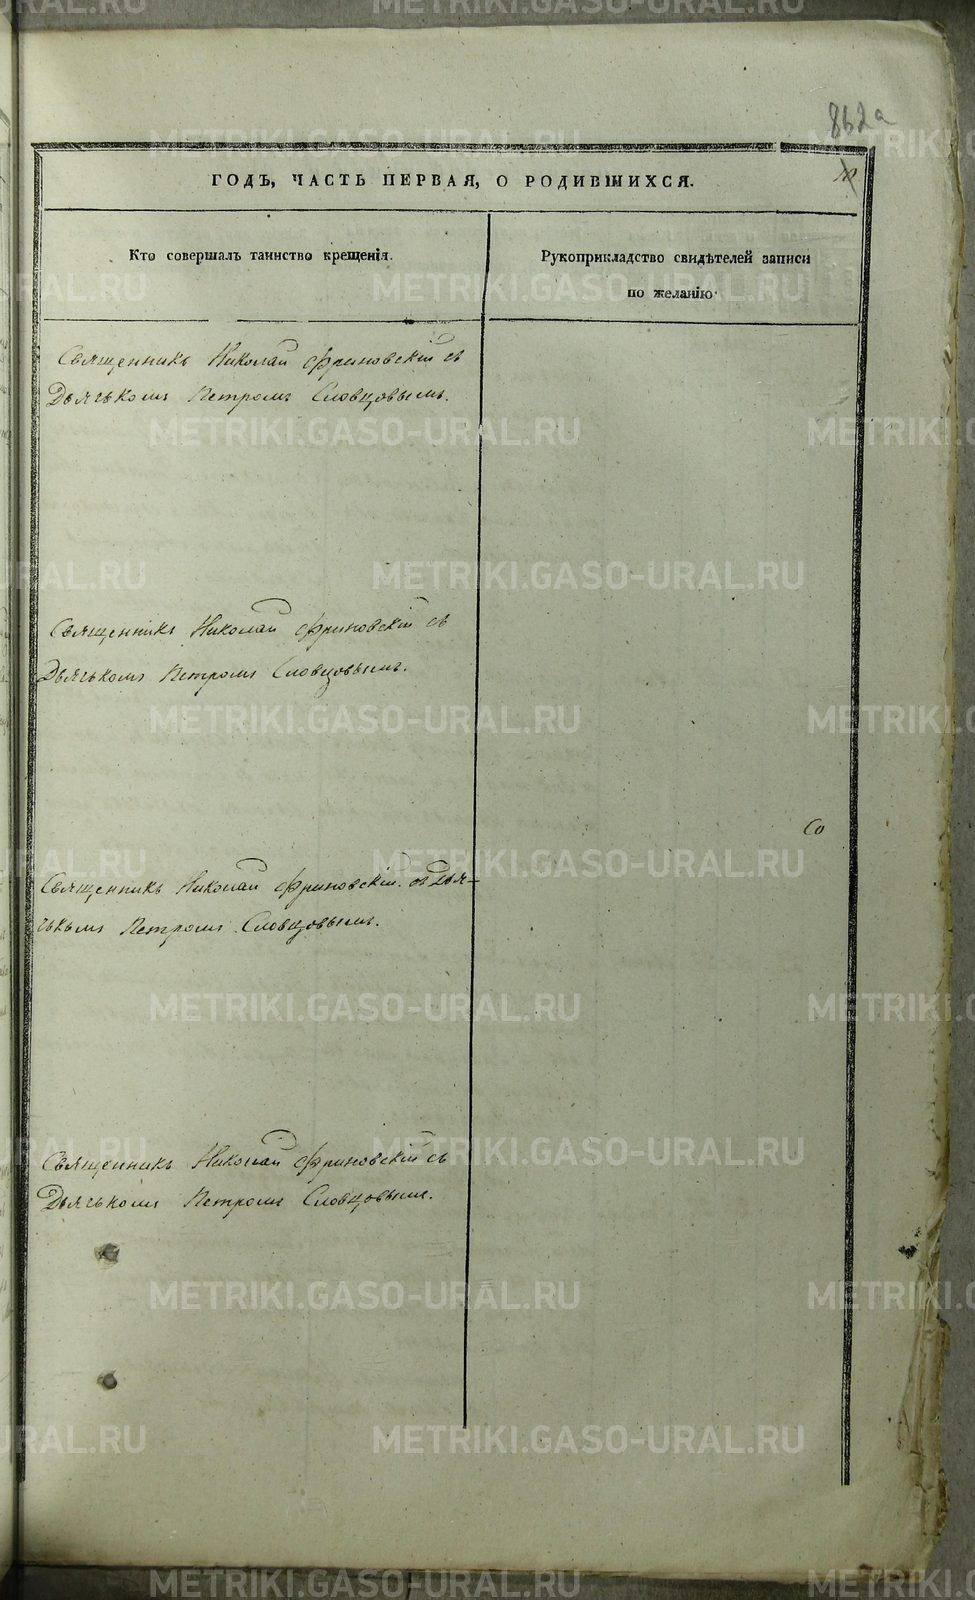 862а
ГОДЪ, ЧАСТЬ ПЕРВАЯ, О РОДИВШИХСЯ.
Кто совершалъ таинство крещенія.
Рукоприкладство свидѣтелей записи
по желанію.
Священникъ Николай Фриновскій съ
Дьячькомъ Петромъ Словцовымъ.
Священникъ Николай Фриновскій съ
Дьячькомъ Петромъ Словцовымъ.
Со
Священникъ Николай Фриновскій съ Дья-
чькымъ Петромъ Словцовымъ.
Священникъ Николай Фриновскій съ
Дьячькомъ Петромъ Словцовымъ.
METRIKI.GASO-URAL.RU